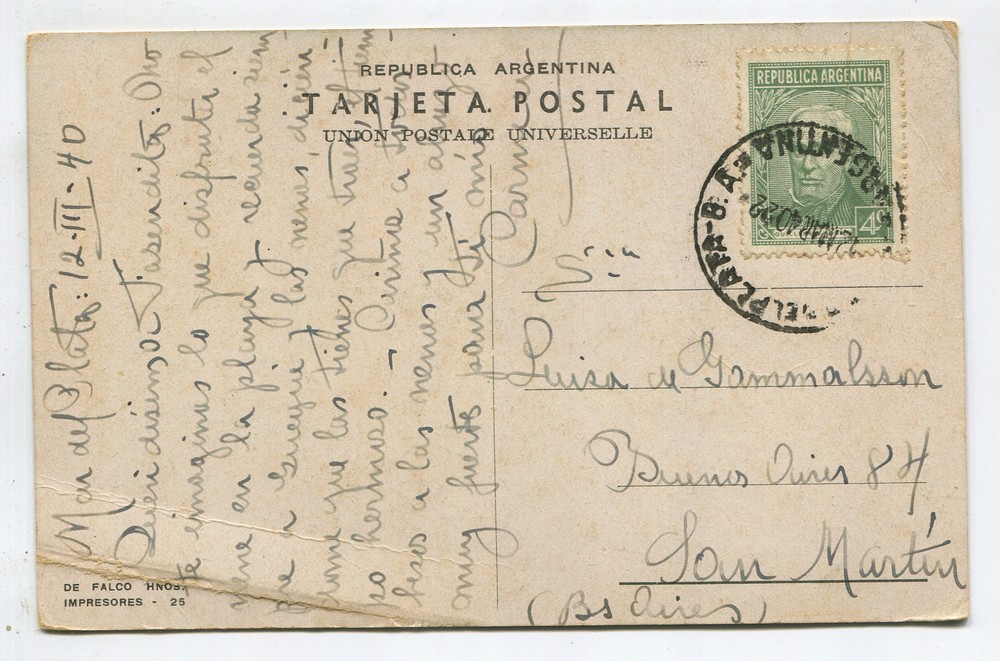 REPUBLICA ARGENTINA
TARJETA POSTAL
UNION POSTALE UNIVERSELLE
REPUBLICA ARGENTINA
4c
MAR DEL PLATA-B. A.
ARGENTINA
12 MAR 40 22
Mar del Plata: 12-III-40
Queridísima Tasendita: No
te imaginas lo que disfruta el
nene en la playa y recuerda siem
pre a Gregue y las nenas, dicién
dome que las tienes que traer, tiem
po hermoso. - Cariños a todos
besos a las nenas y un abrazo
muy fuerte para tí mía de
Carmen
Sria
Luisa de Gammalsson
Buenos Aires 84
San Martín
(Bs Aires)
DE FALCO HNOS.
IMPRESORES - 25